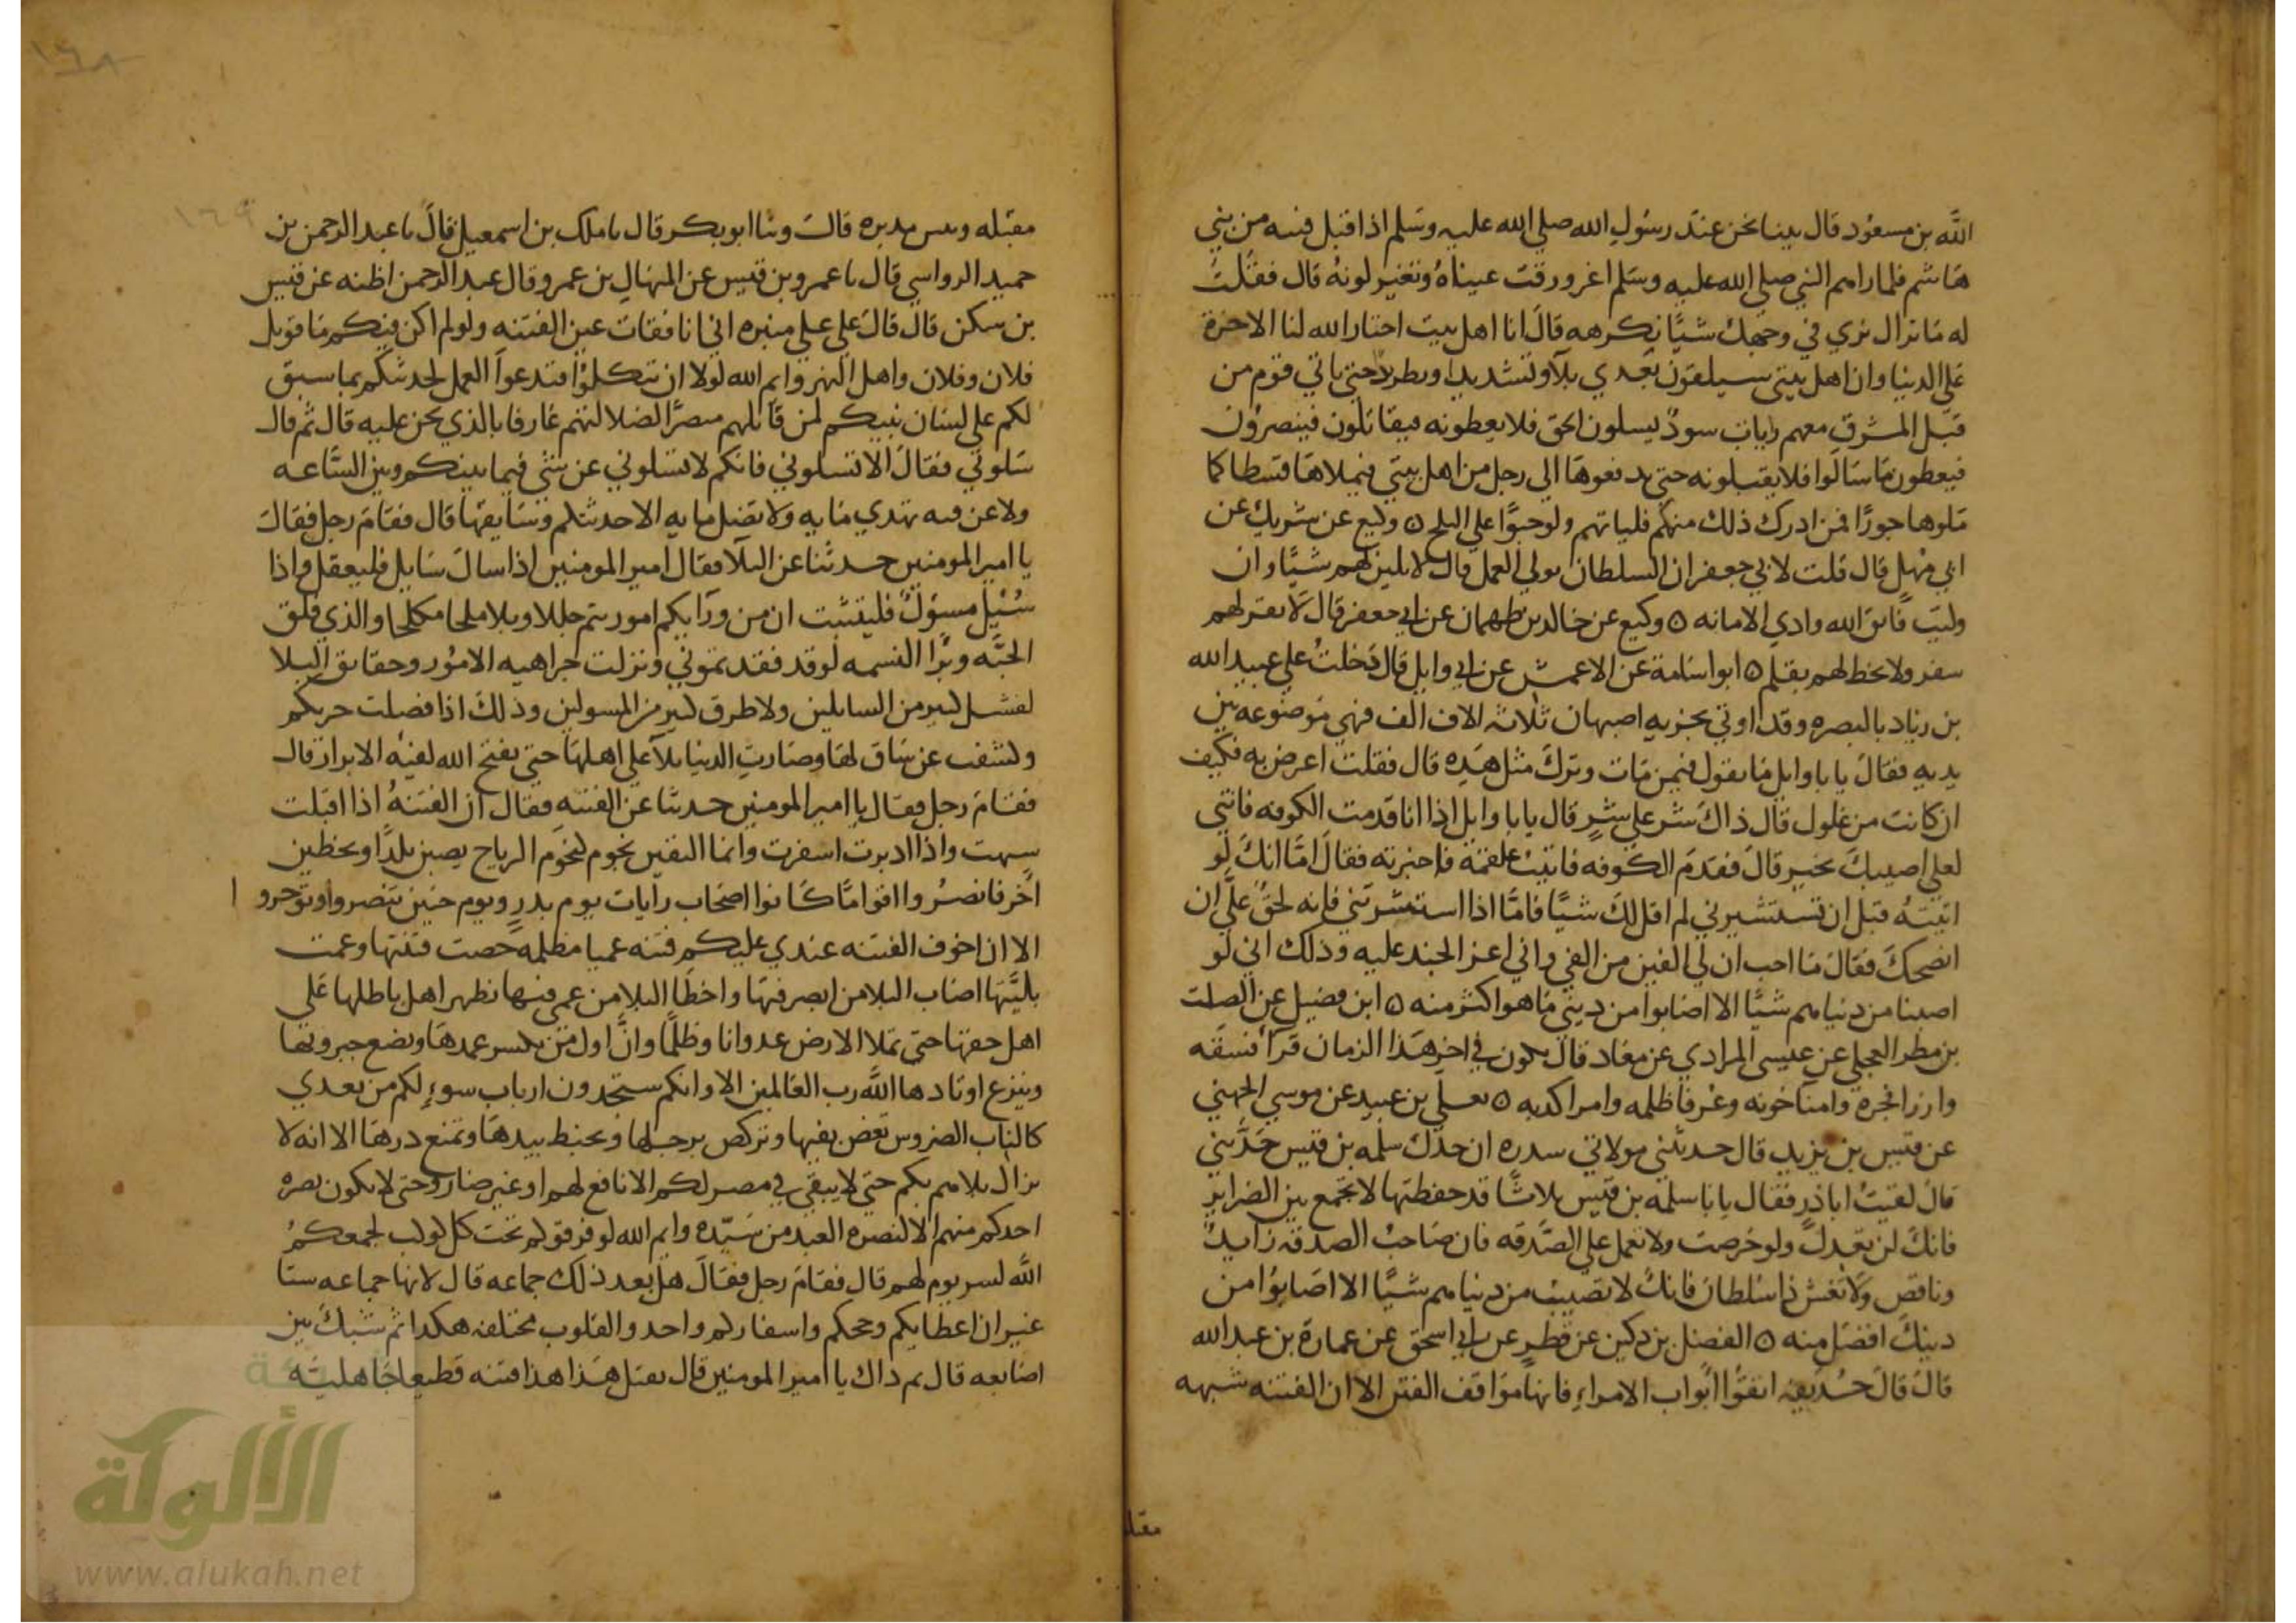 الله بن مسعود قال بينا نحن عند رسول الله صلي الله عليه وسلم اذ اقبل فتيه من بني
هاشم فلما راهم النبي صلي الله عليه وسلم اغرورقت عيناه وتغير لونه قال فقلت
له ما نزال نري في وجهك شيًا نكرهه قال انا اهل بيت اختار الله لنا الاخرة
علي الدنيا وان اهل بيتي سيلقون بعدي بلآ وتشديدا وتطريدا حتي ياتي قوم من
قبل المشرق معهم رايات سودٌ يسلون الحق فلا يعطونه فيقاتلون فينصرون
فيعطون ما سالوا فلا يقبلونه حتي يدفعوها الي رجل من اهل بيتي فيملاها قسطا كما
ملوها جورًا فمن ادرك ذلك منكم فلياتهم ولو حبوًا علي الثلج ٥ وكيع عن شريك عن
ابي مهل قال قلت لابي جعفر ان السلطان يولي العمل قال لا تلين لهم شيًا وان
وليت فاتق الله وادي الامانه ٥ وكيع عن خالد بن طهمان عن ابي جعفر قال لا تعد لهم
سفر ولا تخط لهم بقلم ٥ ابو اسامة عن الاعمش عن ابي وايل قال دخلتُ علي عبيد الله
بن زياد بالبصره وقد اوتي بجزيه اصبهان ثلاثه الاف الف فهي موضوعه بين
يديه فقال يا با وايل ما تقول فيمن مات وترك مثل هذه قال فقلت اعرض به فكيف
ان كانت من غلول قال ذاك شر علي شرٍ قال يا با وايل اذا انا قدمت الكوفه فاتني
لعلي اصيبك بخير قال فقدم الكوفه فاتيت علقمة فاخبرته فقال امّا انك لو
اتيته قبل ان تستشيرني لم اقل لك شيًا فامّا اذا استشرتني فانه لحقٌ عليّ ان
انصحك فقال ما احب ان لي الفين من الفي واني اعز الجند عليه وذلك اني لو
اصبنا من دنياهم شيًا الا اصابوا من ديني ما هو اكثر منه ٥ ابن فضيل عن الصلت
بن مطر العجلي عن عيسي المرادي عن معاذ قال يكون في اخر هذا الزمان قرآ فسقه
ووزرا فجرة وامنآ خونه وعرفا ظلمه وامرا كذبه ٥ يعلي بن عبيد عن موسي الجهني
عن قيس بن يزيد قال حدثتني مولاتي سدره ان جدك سلمه بن قيس حدثني
قال لقيتُ اباذرٍ فقال يا با سلمه بن قيس ثلاثًا قد حفظتها لا تجمع بين الضراير
فانك لن تعدل ولو حرصت ولا تعمل علي الصّدقه فان صاحب الصدقه زايدٌ
وناقص ولا تغش ذا سلطان فانك لا تصيب من دنياهم شيًا الا اصابوا من
دينك افضل منه ٥ الفضل بن دكين عن فطرٍ عن ابي اسحق عن عمارة بن عبد الله
قال قال حذيفه اتقوا ابواب الامراءِ فانها مواقف الفتن الا ان الفتنه شبهه
مقبلة
مقبله وتبين مدبره قالت وثنا ابو بكر قال نا ملك بن اسمعيل قال نا عبد الرحمن بن
حميد الرواسي قال نا عمرو بن قيس عن المنهال بن عمرو قال عبد الرحمن اظنه عن قيس
بن سكن قال قال علي علي منبره اني انا فقات عين الفتنه ولو لم اكن فيكم ما قوتل
فلان وفلان واهل النهر وايم الله لولا ان تتكلوا فتدعوا العمل لحدثتكم بما سبق
لكم علي لسان نبيكم لمن قاتلهم مبصرًا لضلالتهم عارفا بالذي نحن عليه قال ثم قال
سلوني فقال الا تسلوني فانكم لا تسلوني عن شي فيما بينكم وبين السّاعه
ولا عن فيه تهدي مايه ولا تضل مايه الا حدثتكم وسايقها قال فقام رجل فقال
يا امير المومنين حدثنا عن البلآ فقال امير المومنين اذا سال سايل فليعقل واذا
سُئل مسوول فليتثبت ان من ورآيكم امور يتم جللا وبلا ملحا مكلحا والذي فلق
الحبّه وبرًا النسمه لو قد فقدتموني ونزلت جراهيه الامور وحقايق البلا
لفشل كثير من السايلين ولاطرق كثير من المسولين وذلك اذا فصلت حربكم
وكشفت عن ساق لها وصارت الدنيا بلآ علي اهلها حتي يفتح الله لفيه الابرار قال
فقام رجل فقال يا امير المومنين حدثنا عن الفتنه فقال ان الفتنهُ اذا اقبلت
شبهت واذا ادبرت اسفرت وانما الفتن نجوم كنجوم الرياح يصبن بلدًا ويخطين
اخر فانصرُوا اقواما كانوا اصحاب رايات يوم بدر ويوم حنين تنصروا وتوجروا
الا ان اخوف الفتنه عندي عليكم فتنه عميا مظلمه خصت فتنتها وعمت
بليّتها اصاب البلا من ابصر فيها واخطا البلا من عمي فيها يظهر اهل باطلها علي
اهل حقها حتي تملا الارض عدوانا وظلمًا وانّ اول من يكسر عمدها ويضع جبروتها
وينزع اوتادها الله رب العالمين الا وانكم ستجدون ارباب سوءٍ لكم من بعدي
كالناب الضروس تعض بفيها وتركض برجلها وتخبط بيدها وتمنع درها الا انه لا
يزال بلاهم بكم حتي لا يبقي في مصر لكم الا نافع لهم او غير ضار وحتي لا يكون نصره
احدكم منهم الا كنصره العبد من سيّده وايم الله لو فرقوكم تحت كل كوكب لجمعكمُ
الله لسر يوم لهم قال فقام رجل فقال هل بعد ذلك جماعه قال لا انها جماعه ستا
غير ان اعطاياكم وحجكم واسفاركم واحد والقلوب مختلفه هكذا ثم شبك بين
اصابعه قال مم ذاك يا امير المومنين قال يقتل هذا هذا فتنه قطيعا جاهليه
١٦٨
١٦٩
الألوكة
www.alukah.net